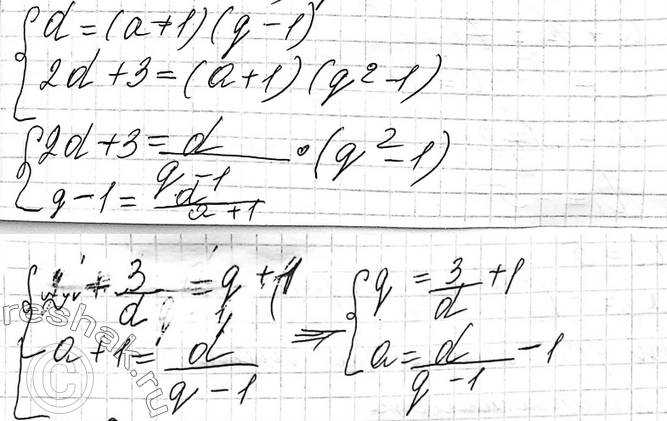 d = (a+1)(q-1)
2d+3 = (a+1)(q²-1)
2d+3 = d/(q-1) · (q²-1)
q-1 = d/(a+1)
+ 3/d = q+1
a+1 = d/(q-1) ⇒ q = 3/d + 1
a = d/(q-1) - 1